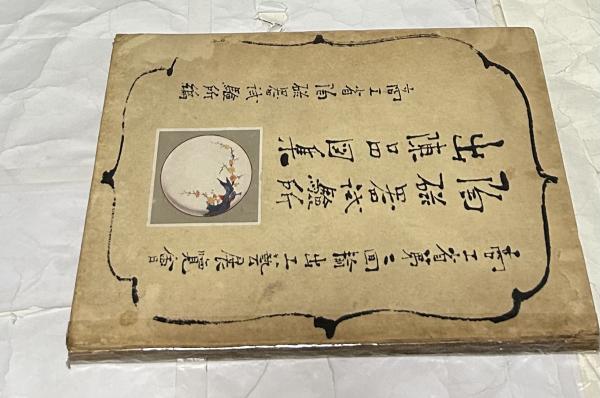 商工省第二回輸出工藝展覽會
陶磁器試驗所
出陳品圖集
商工省陶磁器試驗所編